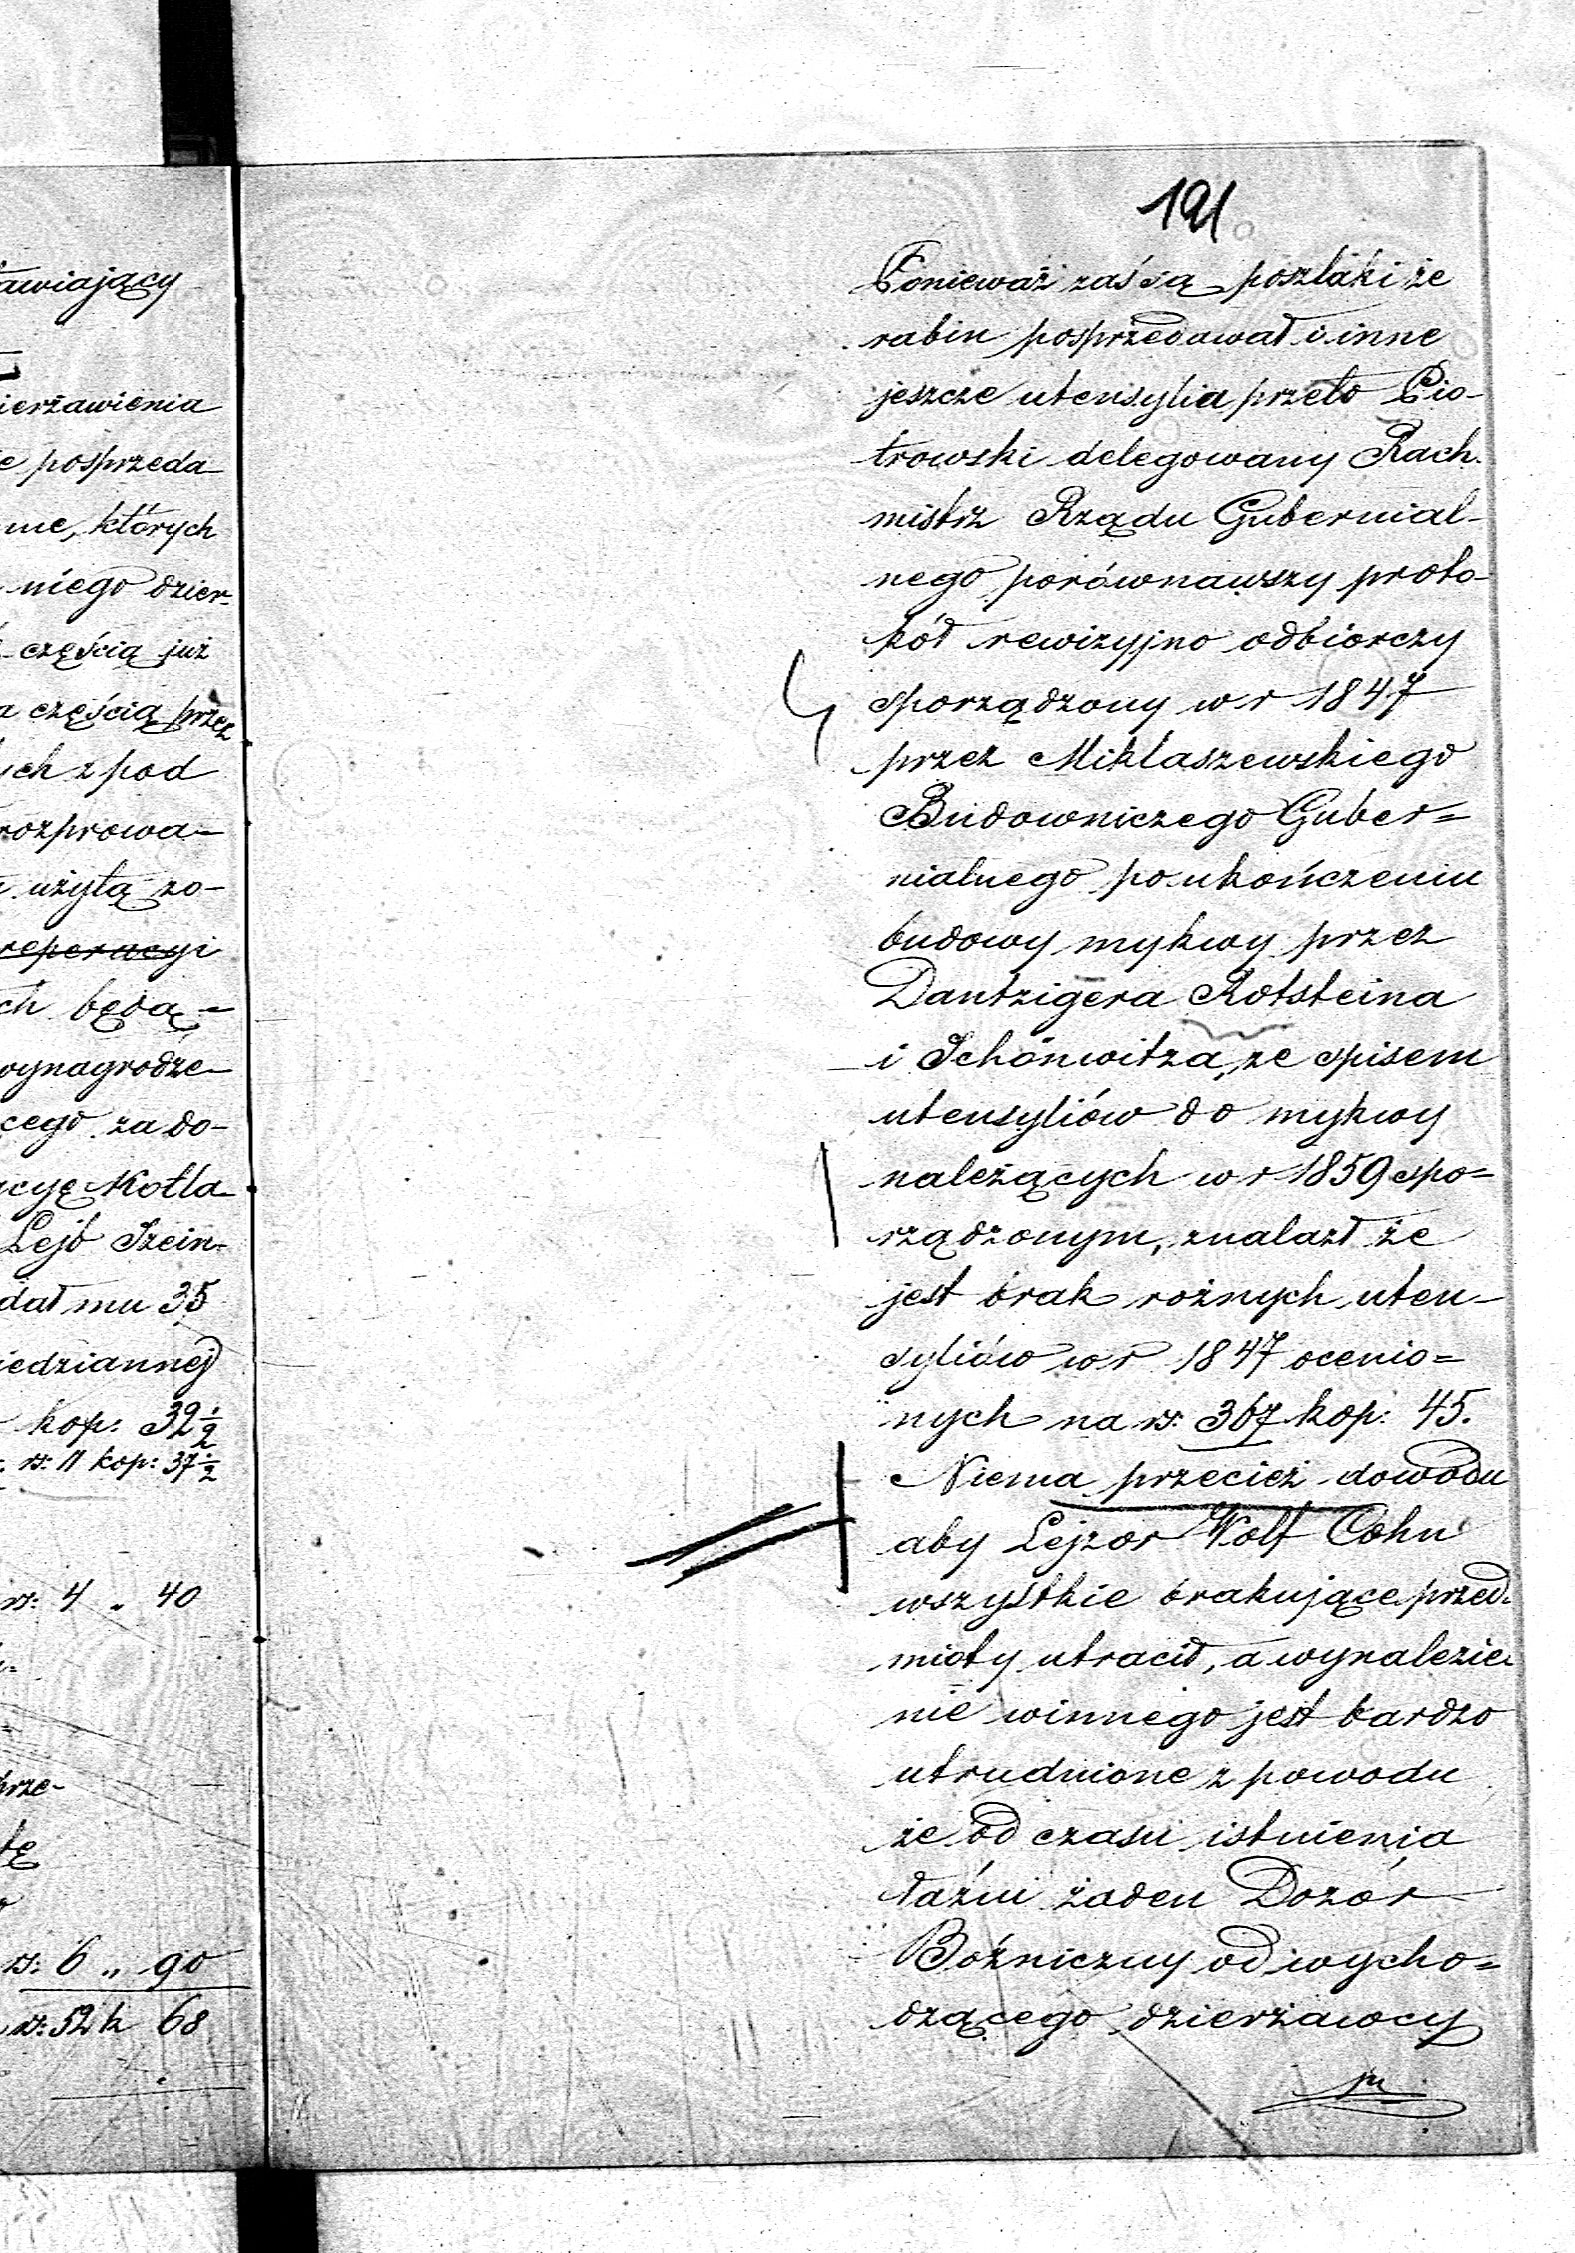 awiający
ierżawienia
e posprzeda
me, których
niego dzier-
częścią już
a częścią przez
ych z pod
rozprowa-
użytą zo-
reperacyi
ch będą-
wynagrodze-
cego za do-
acyę Kotła
Lejb Szein-
dał mu 35
iedziannej
kop: 32 1/2
rs: 11 kop: 37 1/2
rs: 4 „ 40
prze-
tę
rs: 6 „ 90
rs: 52 k 68
191
Ponieważ zaś są poszlaki że
rabin posprzedawał i inne
jeszcze utensylia przeto Pio-
trowski delegowany Rach-
mistrz Rządu Gubernial-
nego porównawszy proto-
kół rewizyjno odbiorczy
sporządzony w r 1847
przez Miklaszewskiego
Budowniczego Guber=
nialnego po ukończeniu
budowy mykwy przez
Dantzigera Rotsteina
i Schönwitza, ze spisem
utensyliów do mykwy
należących w r 1859 spo=
rządzonym, znalazł że
jest brak rożnych uten-
syliów w r 1847 ocenio=
nych na rs: 367 kop: 45.
Niema przecież dowodu
aby Lejzor Wolf Cohn
wszystkie brakujące przed-
mioty utracił, a wynalezie-
nie winnego jest bardzo
utrudnione z powodu
że od czasu istnienia
łaźni żaden Dozór
Bóżniczny od wycho=
dzącego dzierżawcy